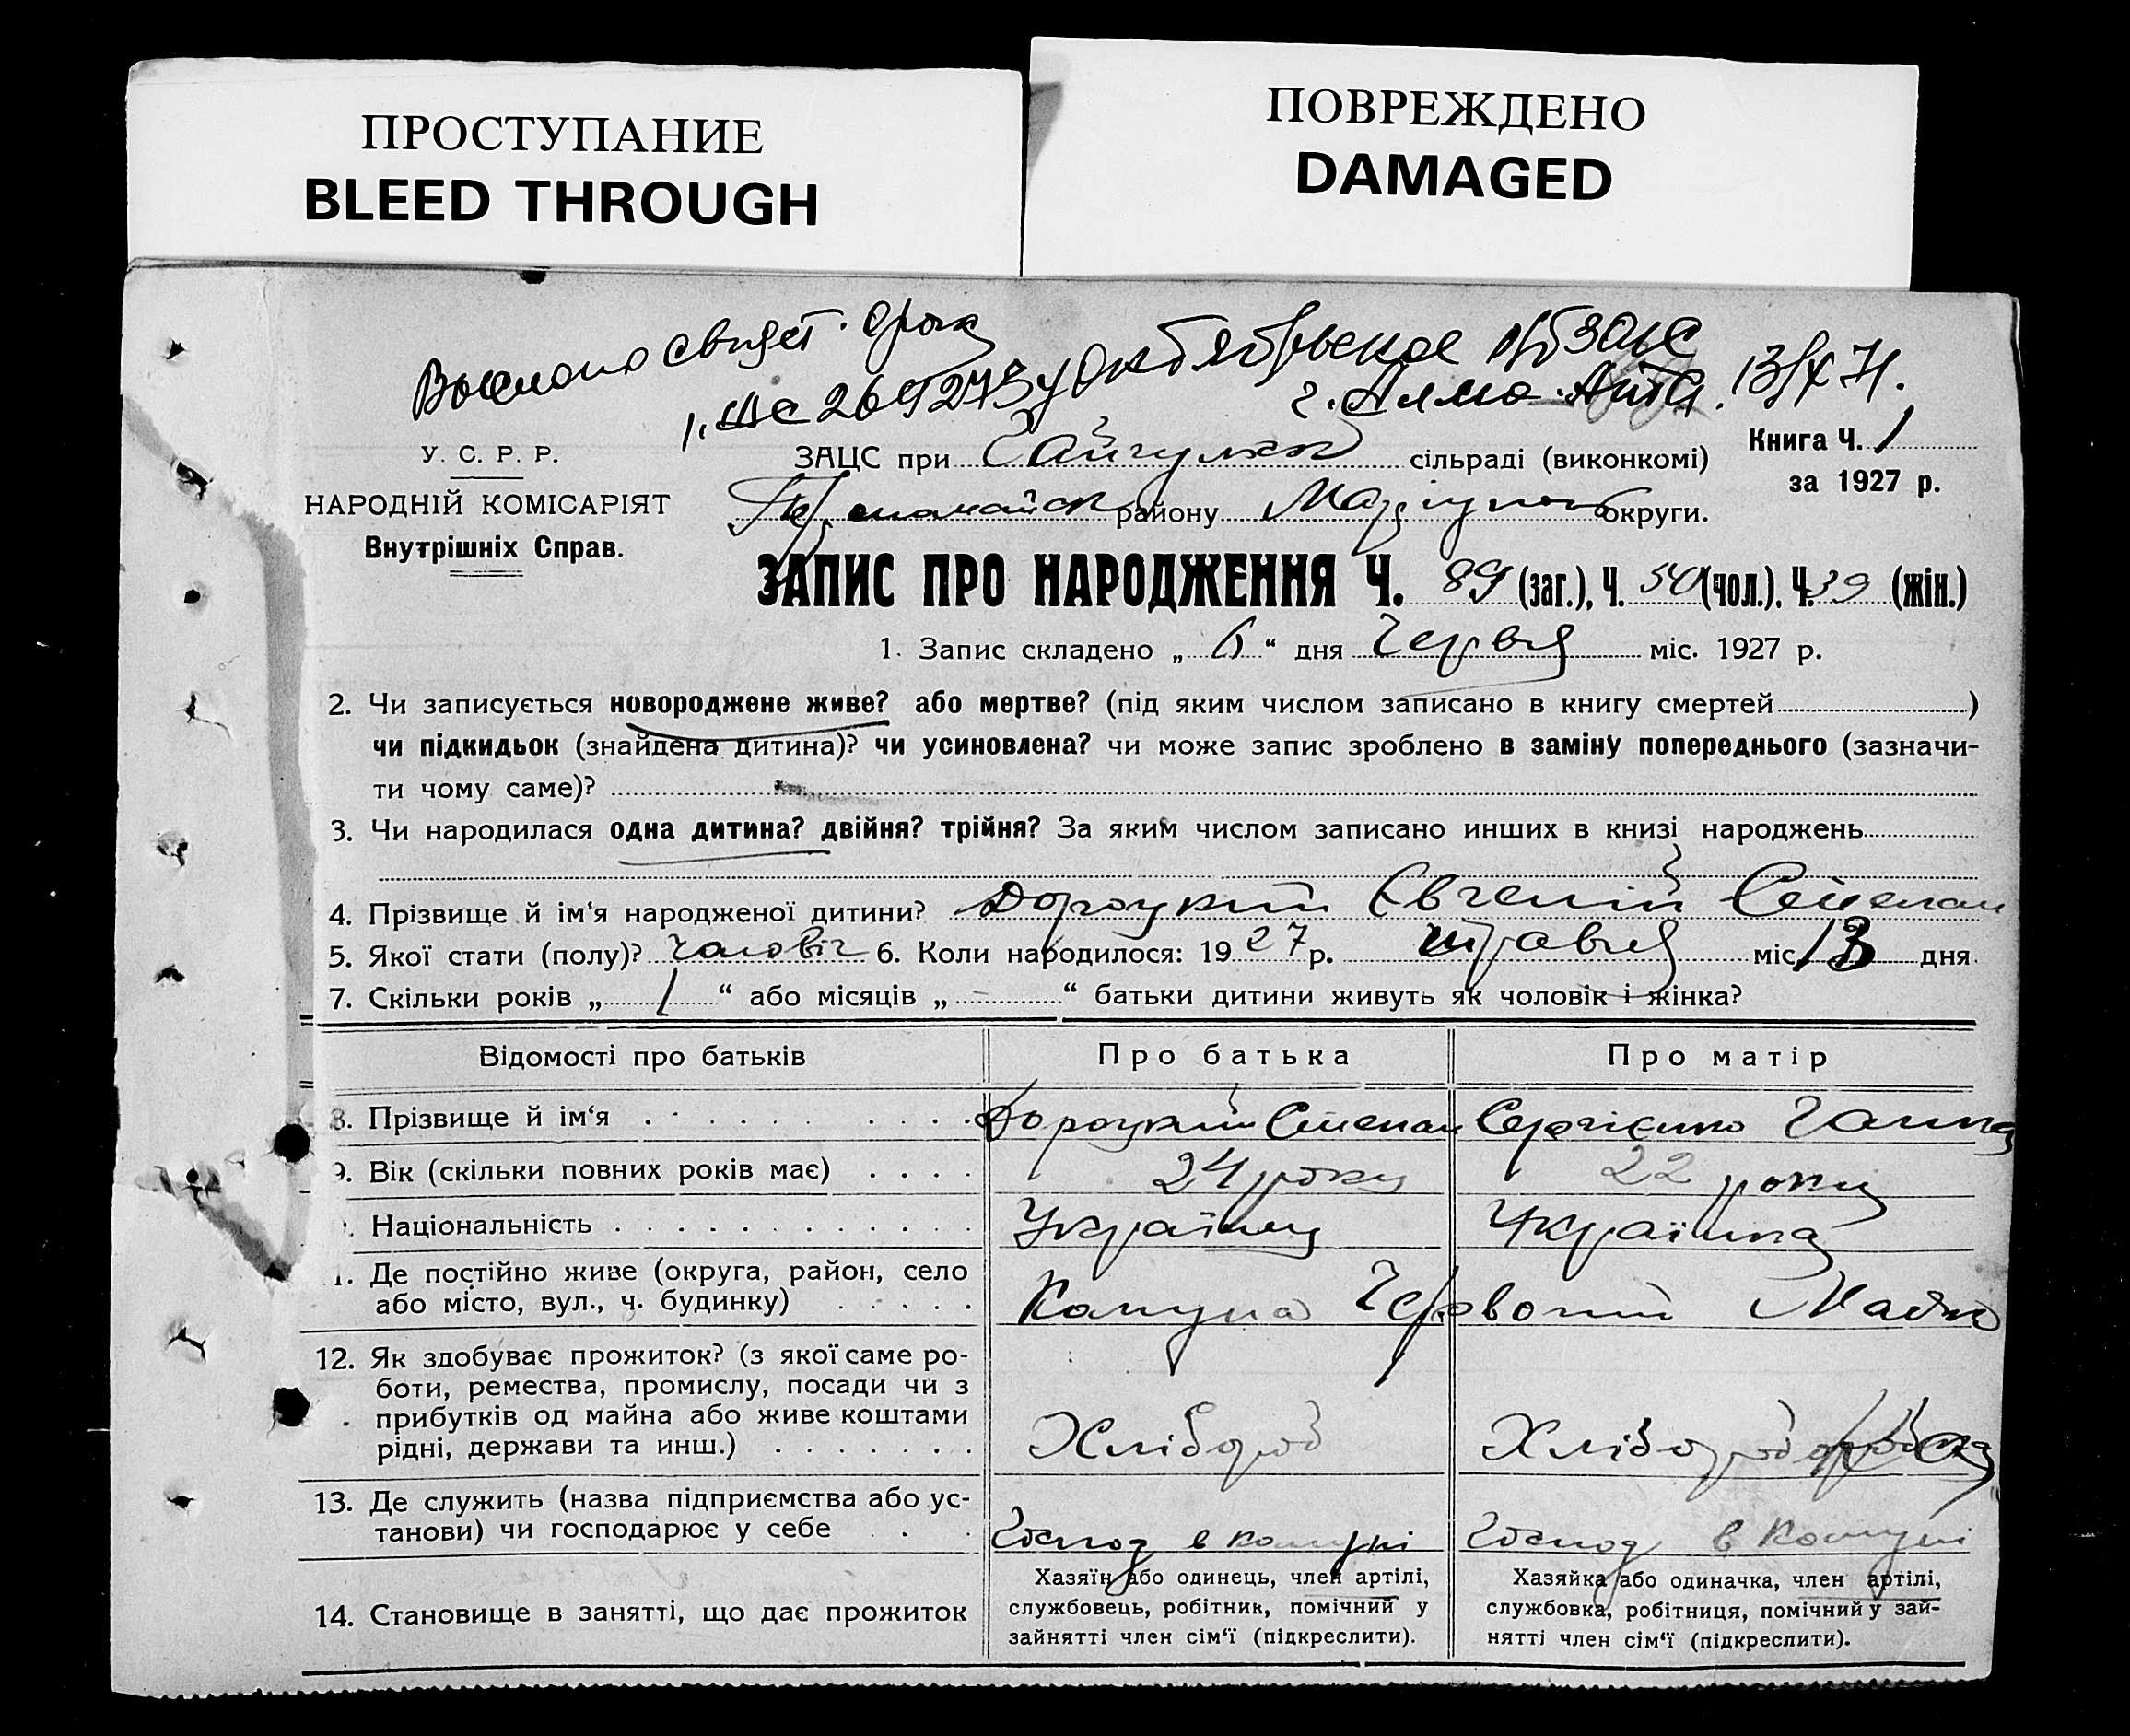 ПРОСТУПАНИЕ
BLEED THROUGH
ПОВРЕЖДЕНО
DAMAGED
Выслано свидет.
269273 у Октябрьское р/б загс
г. Алма-Ата. 13/X 71.
У. С. Р. Р.
НАРОДНІЙ КОМІСАРІЯТ
Внутрішніх Справ.
ЗАЦС при сільраді (виконкомі)
Книга Ч. 1
за 1927 р.
району Маріупол округи.
ЗАПИС ПРО НАРОДЖЕННЯ Ч. 89 (заг.), Ч. 50 (чол.), Ч. 39 (жін.)
1. Запис складено „ 6 “ дня Червня міс. 1927 р.
2. Чи записується новороджене живе? або мертве? (під яким числом записано в книгу смертей )
чи підкидьок (знайдена дитина)? чи усиновлена? чи може запис зроблено в заміну попереднього (зазначи-
ти чому саме)?
3. Чи народилася одна дитина? двійня? трійня? За яким числом записано инших в книзі народжень
4. Прізвище й ім‘я народженої дитини? Дороцкий Євгеній Степан
5. Якої стати (полу)? чоловіч 6. Коли народилося: 1927 р. травня міс. 13 дня.
7. Скільки років „ 1 “ або місяців „ - “ батьки дитини живуть як чоловік і жінка?
Відомості про батьків Про батька Про матір
8. Прізвище й ім‘я Дороцкий Степан Сергієнко Ганна
9. Вік (скільки повних років має) 24 роки 22 роки
. Національність Українец Українка
1. Де постійно живе (округа, район, село
або місто, вул., ч. будинку) Комуна Червоний Маяк
12. Як здобуває прожиток? (з якої саме ро-
боти, ремества, промислу, посади чи з
прибутків од майна або живе коштами
рідні, держави та инш.) Хлібороб Хлібороб
13. Де служить (назва підприємства або ус-
танови) чи господарює у себе Господ в комуні Господ в комуні
14. Становище в занятті, що дає прожиток
Хазяїн або одинець, член артілі,
службовець, робітник, помічний у
зайнятті член сім‘ї (підкреслити).
Хазяйка або одиначка, член артілі,
службовка, робітниця, помічний у зай-
нятті член сім‘ї (підкреслити).